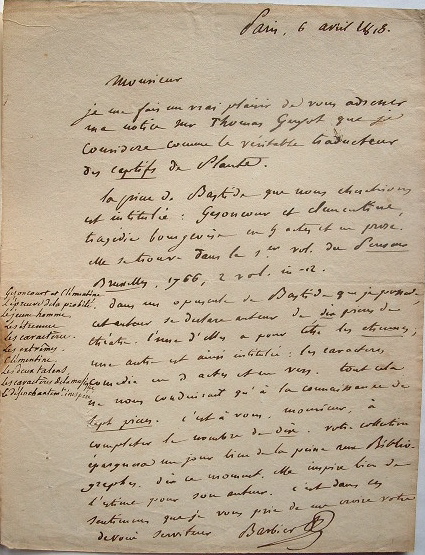 Paris, 6 avril 1818.
Monsieur
je me fais un vrai plaisir de vous adresser
ma notice sur Thomas Guyot que je
considere comme le véritable traducteur
des captifs de Plaute.
la piece de Bastide que nous cherchions
est intitulée : Gesoncour et Clementine,
tragédie bourgeoise en 5 actes et en prose.
elle se trouve dans le 1er vol. du Penseur
Bruxelles, 1766, 2 vol. in-12.
dans un opuscule de Bastide que je possede,
cet auteur se declare auteur de dix pieces de
théatre. l'une d'elles a pour titre les étrennes;
une autre est ainsi intitulée : les caracteres
comedie en 3 actes et en vers. tout cela
ne nous conduisait qu'à la connaissance de
sept pieces. c'est à vous, monsieur, à
completer le nombre de dix. votre collection
épargnera un jour bien de la peine aux Biblio-
graphes. dès ce moment, elle inspire bien de
l'estime pour son auteur. c'est dans ces
sentimens que je vous prie de me croire votre
devoué serviteur Barbier
Gesoncourt et Clémentine
L'épreuve de la probité
Le jeune homme.
Les étrennes
Les caracteres.
Les extrêmes
Clémentine.
Les deux talens.
Les caracteres de la
Le désenchantement